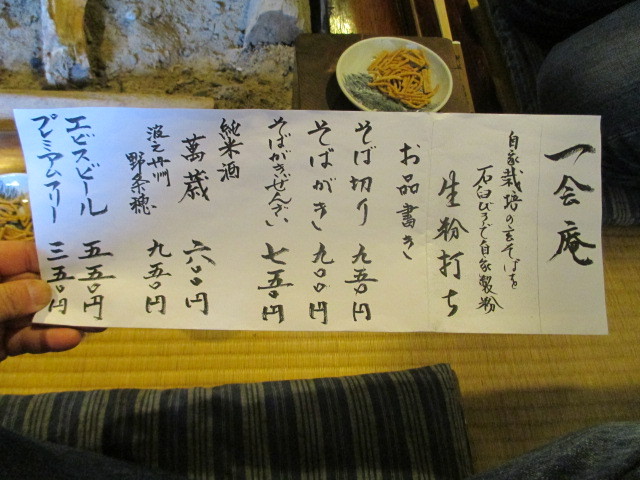 一会庵
自家栽培の玄そばを
石臼びきで自家製粉
生粉打ち
お品書き
そば切り 九五〇円
そばがき 九〇〇円
そばがきぜんざい 七五〇円
純米酒
萬歳 六〇〇円
野条穂 九五〇円
エビスビール 五五〇円
プレミアムフリー 三五〇円